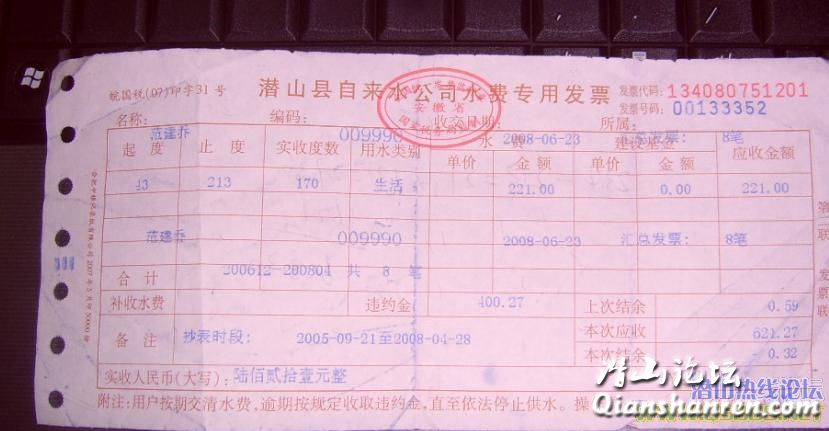 皖国税(07)印字31号 潜山县自来水公司水费专用发票 发票代码:134080751201
发票号码:00133352
名称: 范建乔 编码: 009990 收交日期: 2008-06-23 所属: 汇总发票: 8笔
起度 止度 实收度数 用水类别 水费 建设基金 应收金额
单价 金额 单价 金额
43 213 170 生活 221.00 0.00 221.00
范建乔 009990 2008-06-23 汇总发票: 8笔
合计 200612-200804 共 8 笔
补收水费 违约金 400.27 上次结余 0.59
备注 抄表时段: 2005-09-21至2008-04-28 本次应收 621.27
本次结余 0.32
实收人民币(大写): 陆佰贰拾壹元整
附注:用户按期交清水费,逾期按规定收取违约金,直至依法停止供水。操
安徽省
第二联 发票联
潜山热线论坛
潜山论坛
Qianshanren.com